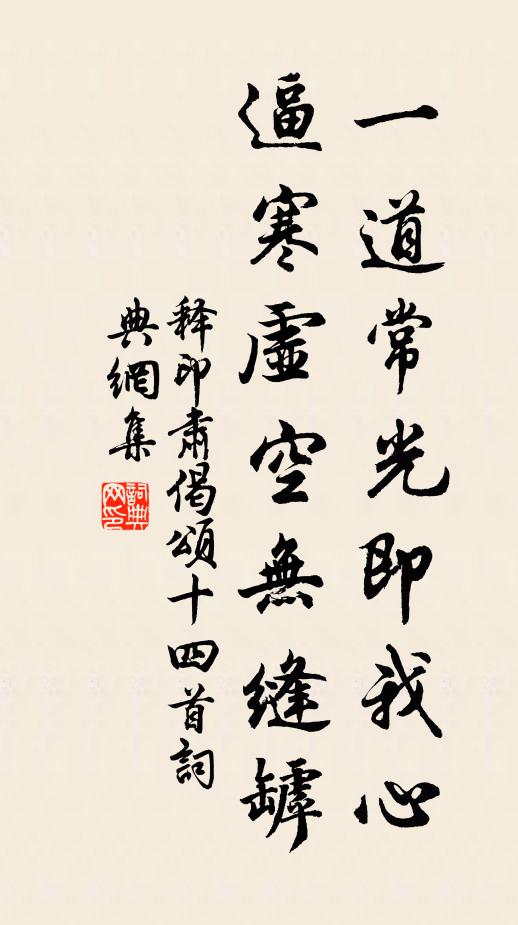 一道常光即我心
逼寒虛空無縫罅
释印肅偈頌十四首詞
典網集
詞典网印